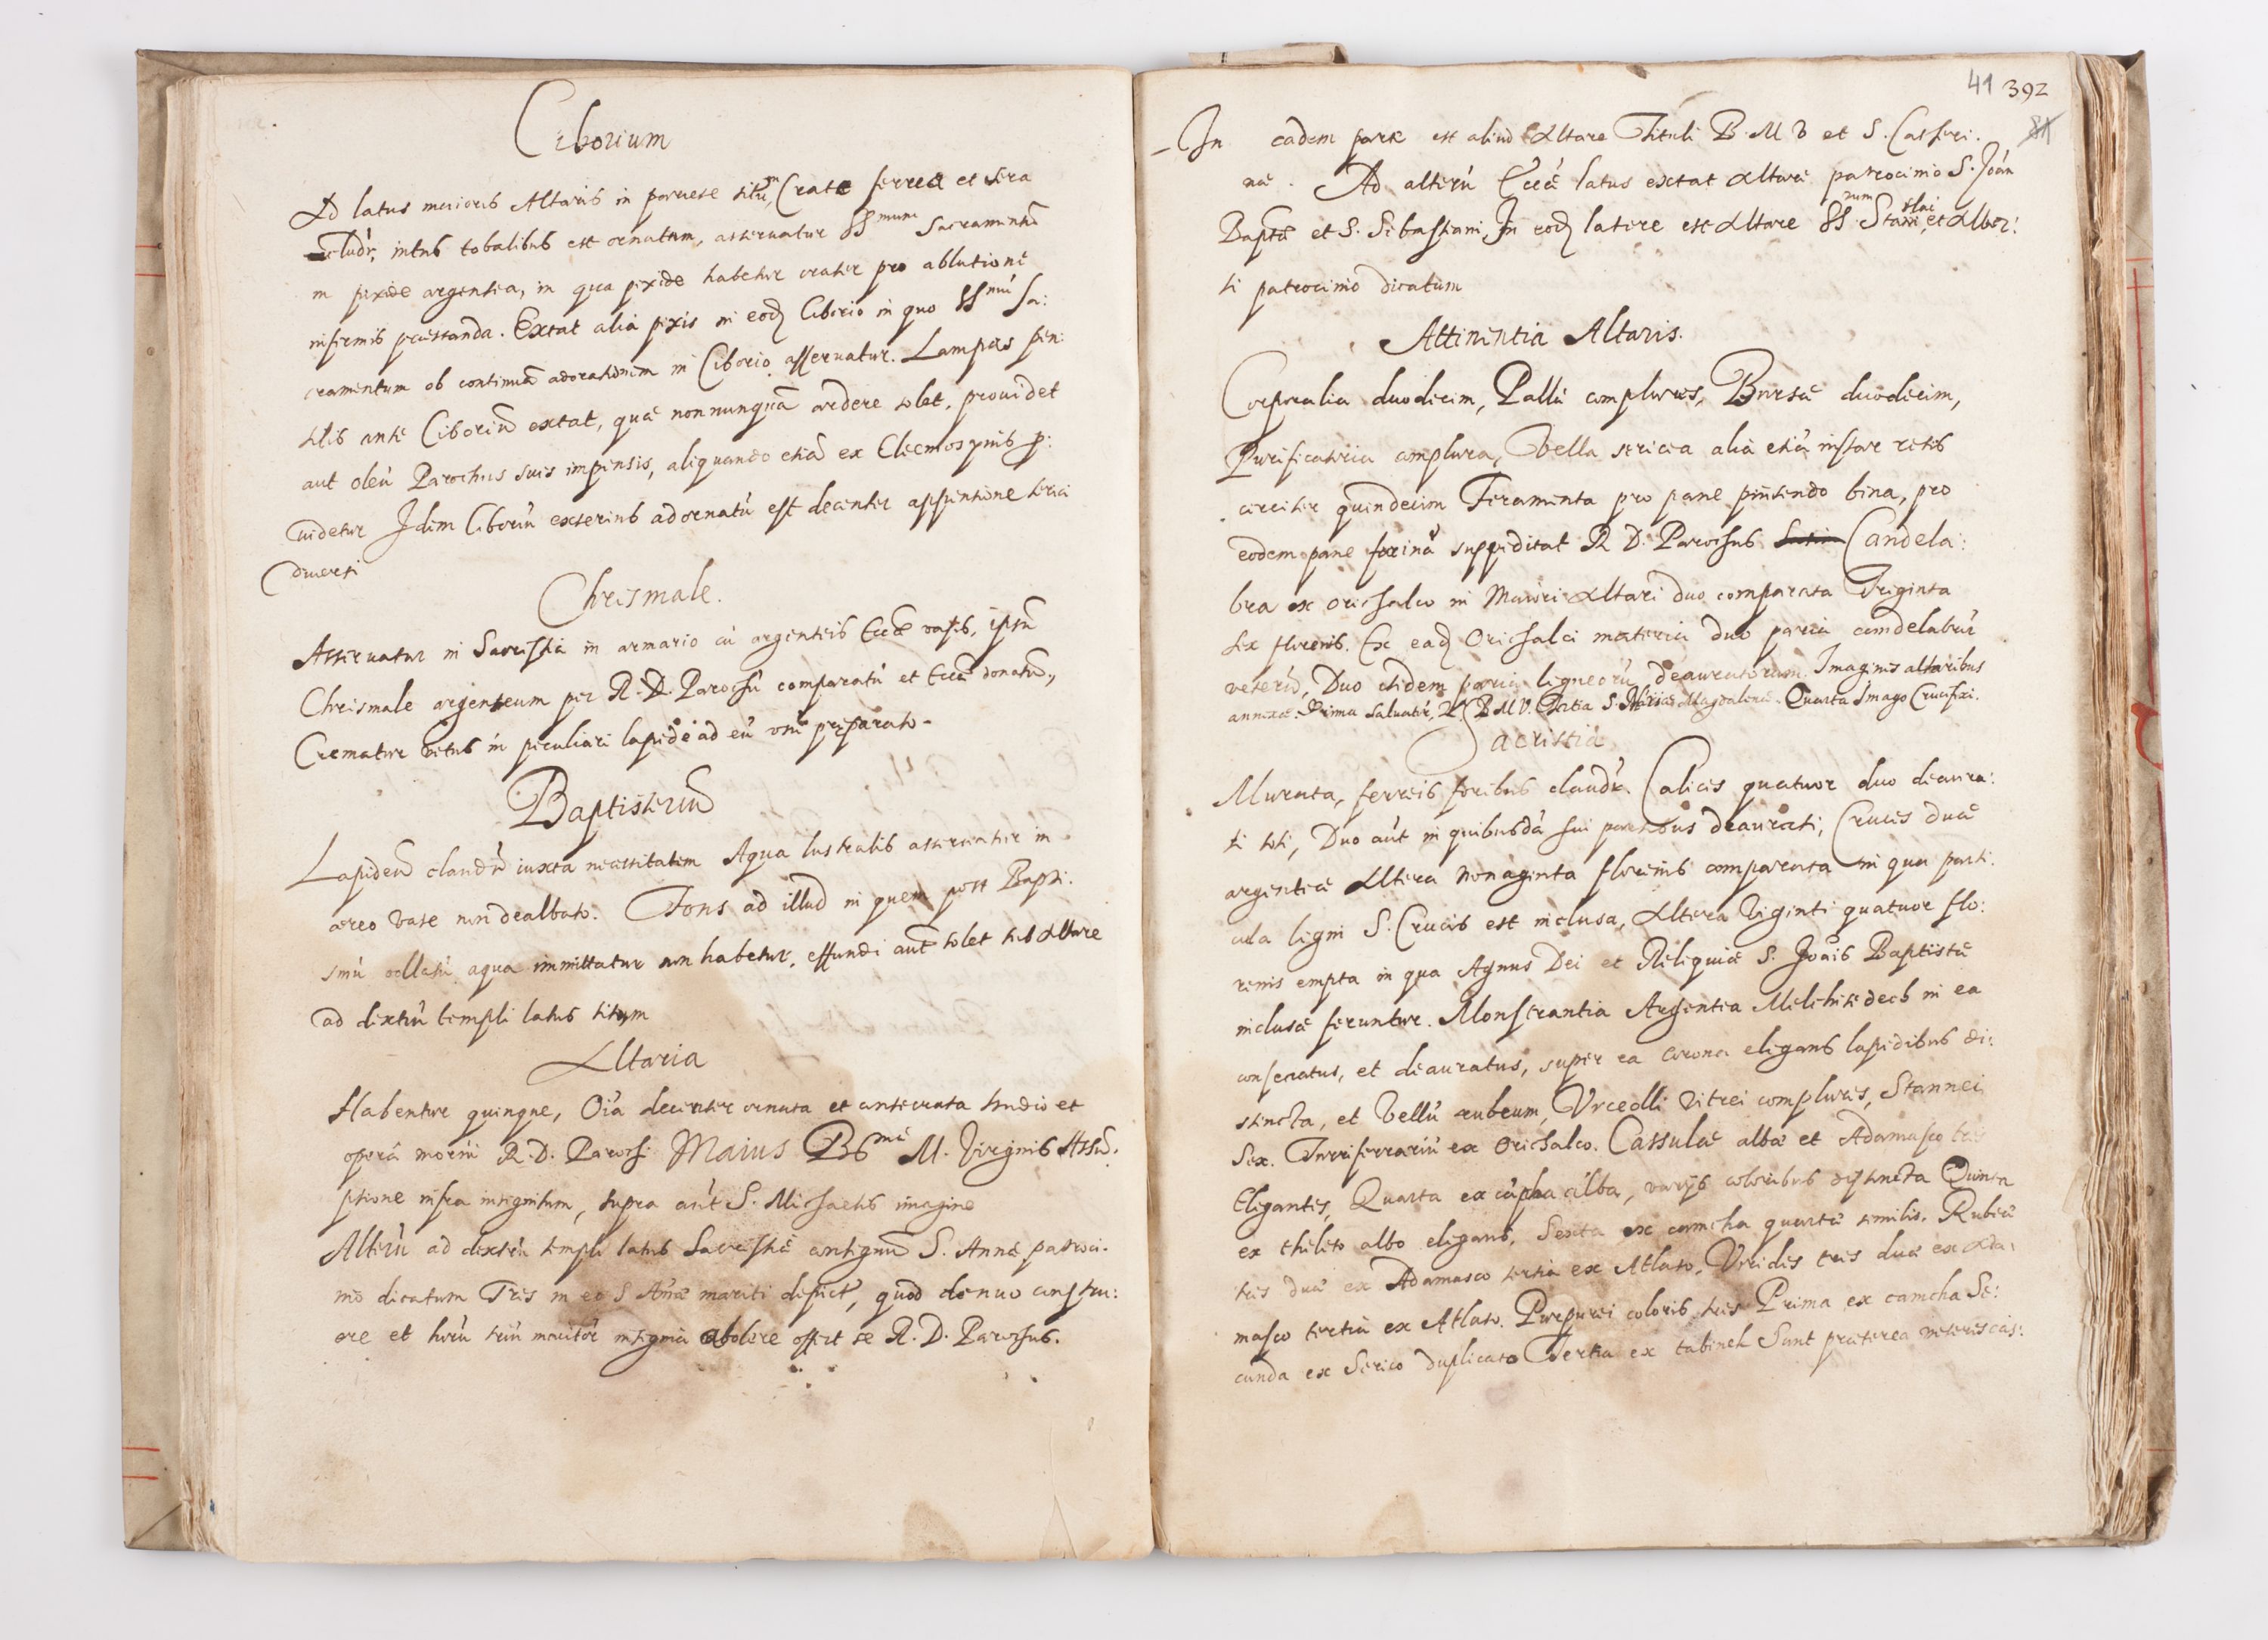 Ciborium
Ad latus maioris Altaris in pariete situm, Crate ferrea et sera
cludr, intus tobalibus est ornatum, asseruatur SSmum Sacramentū
in pixide argentea, in qua pixide habetur crater pro ablutione
infirmis praestanda. Extat alia pixis in eodē Ciborio in quo SSmū Sa:
cramentum ob continuā adorationem in Ciborio asseruatur. Lampas pen:
silis ante Ciboriū extat, quae nonnunquā ardere solet, prouidet
aut oleū Parochus suis impensis, aliquando etiā ex Eleemosynis p:
uidetur Idem Ciboriū exterius adornatū est decenter appensione serici
diuersi
Chrismale.
Asseruatur in Sacristia in armario cū argenteis Eccae vasis, ipsū
Chrismale argenteum per R. D. Parochū comparatū et Eccae donatū,
Crematur vetus in peculiari lapide ad eū usū preparato.
Baptisteriū
Lapideū claudr iuxta necessitatem Aqua lustralis asseruatur in
aereo vase non dealbato. Fons ad illud in quem post Bapti.
smū collatū aqua immittatur non habetur, effundi aut solet sub Altare
ad dextrū templi latus situm
Altaria
Habentur quinque, Oīa decenter ornata et consecrata studio et
opera R. D. Parochi Maius Bsmae M. Virginis Assū.
ptione infra insignitum, supra aūt S. Michaelis imagine
Alterū ad dextrū templi latus Sacristiae contiguū S. Annae patroci.
nio dicatum Tres in eo S Annae mariti depicti, quod denuo constru:
ere et horū triū maritor insignia abolere offert se R. D. Parochus.
41 392
In eadem parte est aliud Altare Tituli B M V et S. Catheri. 81
nae. Ad alterū Eccae latus extat altare patrocinio S. Joān
Baptae et S. Sebastiani, In eodē latere est Altare SS.num Stanislai et Alber:
ti patrocinio dicatum
Attinentia Altaris.
Corporalia duodecim, Palla complures, Bursae duodecim,
Purificatoria complura, Vella sericea alia etiā instar retis
circiter quindecim Feramenta pro pane pinsendo bina, pro
eodem pane farinā suppeditat R D. Parochus Candela:
bra ex orichalco in Maiori Altari duo comparata Triginta
sex florenis. Ex eadē Orichalci materia duo paria candelabrū
veterū, Duo itidem paria ligneorū deauratorum. Imagines altaribus
annexae. Prima Saluatir, 2a B M V. Tertia S. Mariae Magdalenae. Quarta Imago Crucifixi.
Sacristia
Murata, ferreis foribus claudr. Calices quatuor duo deaura:
ti toti, Duo aūt in quibusdā sui partibus deaurati, Cruces duae
argenteae Altera nonaginta florenis comparata in qua parti.
cula ligni S. Crucis est inclusa, Altera Viginti quatuor flo:
renis empta in qua Agnus Dei et Reliquiae S. Joāis Baptistae
inclusae feruntur. Monstrantia Argentea Melchisedech in ea
consecratus, et deauratus, super ea corona elegans lapidibus di:
stincta, et Vellū rubeum, Vrceolli vitrei complures, Stannei
Sex. Turriferrariū ex Orichalco. Cassulae albae et Adamasco tres
Elegantes, Quarta ex alba, varijs coloribus distincta Quinta
ex theleto albo elegans, Sexta ex camcha quartae similis. Rubeae
tres duae ex Adamasco tertia ex Atlaso. Virides tres duae ex Ada:
masco tertia ex Atlaso. Purpurei coloris tres Prima ex camcha Se:
cunda ex Serico duplicato Tertia ex tabinek Sunt praeterea veteres cas: